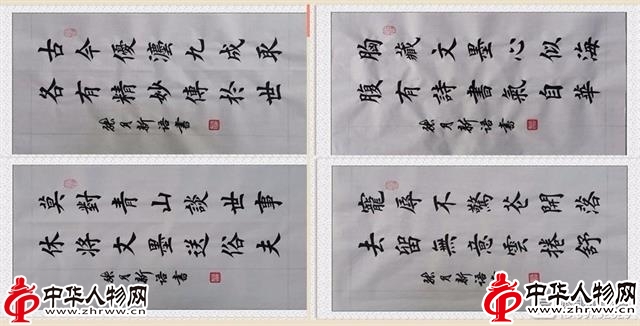 古今優九成取
各有精妙傳於世
月新语書
胸藏文墨心似海
腹有詩書氣自華
月新语書
莫對青山談世事
休將文墨送俗夫
月新语書
寵辱不驚花開落
去留無意雲捲舒
月新语書
中华人物网
www.zhrww.cn
中华人物网
www.zhrww.cn